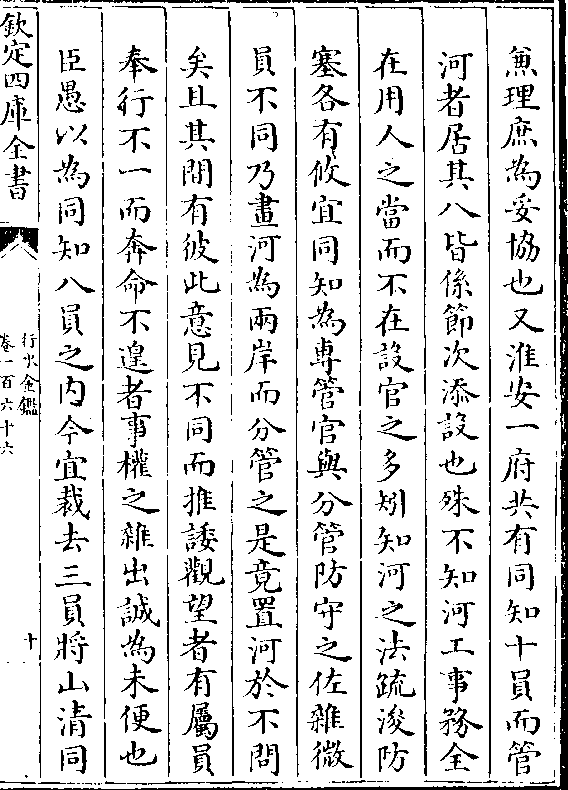 兼理庶為妥協也又淮安一府共有同知十員而管
河者居其八皆係節次添設也殊不知河工事務全
在用人之當而不在設官之多矧知河之法疏浚防
塞各有攸宜同知為専管官與分管防守之佐雜微
員不同乃畫河為兩岸而分管之是竟置河於不問
矣且其間有彼此意見不同而推諉觀望者有屬員
奉行不一而奔命不遑者事權之雜出誠為未便也
臣愚以為同知八員之内今宜裁去三員將山清同
欽定四庫全書
行水金鑑
卷一百六十六
十